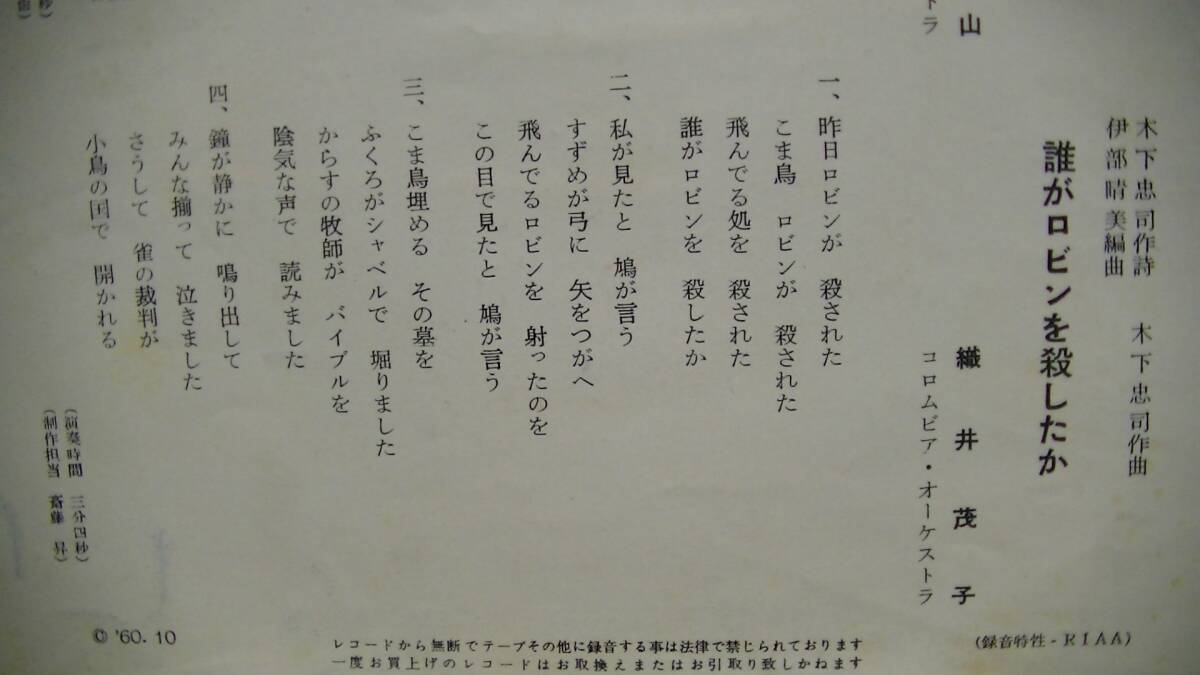 木下忠司作詩　木下忠司作曲
伊部晴美編曲
誰がロビンを殺したか
織井茂子
コロムビア・オーケストラ
山
トラ
一、昨日ロビンが　殺された
こま鳥　ロビンが　殺された
飛んでる処を　殺された
誰がロビンを　殺したか
二、私が見たと　鳩が言う
すずめが弓に　矢をつがへ
飛んでるロビンを　射ったのを
この目で見たと　鳩が言う
三、こま鳥埋める　その墓を
ふくろがシャベルで　堀りました
からすの牧師が　バイブルを
陰気な声で　読みました
四、鐘が静かに　鳴り出して
みんな揃って　泣きました
さうして　雀の裁判が
小鳥の国で　開かれる
(演奏時間　三分四秒)
(制作担当　斎藤　昇)
秒)
© '60. 10
レコードから無断でテープその他に録音する事は法律で禁じられております
一度お買上げのレコードはお取換えまたはお引取り致しかねます
(録音特性-RIAA)